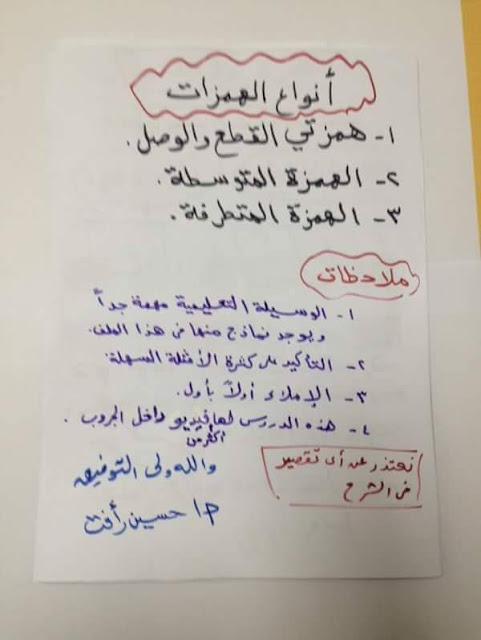 أنواع الهمزات
١- همزتي القطع والوصل.
٢- الهمزة المتوسطة.
٣- الهمزة المتطرفة.
ملاحظات
١- الوسيلة التعليمية مهمة جداً
ويوجد نماذج منها في هذا الملف.
٢- التأكيد على كثرة الأمثلة السهلة.
٣- الإملاء أولاً بأول.
٤- هذه الدروس لها أكثر من فيديو داخل الجروب.
نعتذر عن أى تقصير
فى الشرح
والله ولى التوفيق
أ/ حسين رأفت